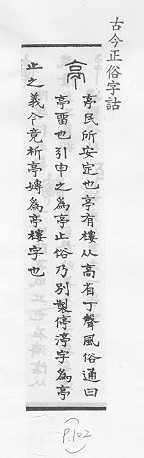 古今正俗字詁
亭 亭民所安定也亭有樓从高省丁聲風俗通曰
亭畱也引申之為亭止俗乃別製停渟字為亭
止之義今竟析亭嫥為亭樓字也
P.122